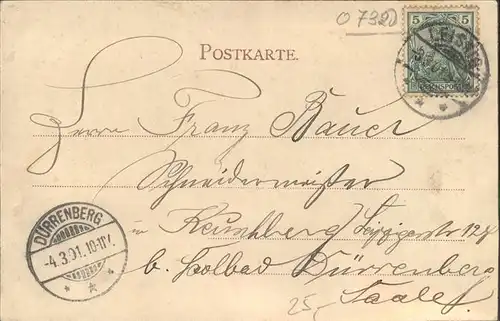 0 7320
5 5
REICHSPOST
LEISNIG
POSTKARTE.
Herrn Franz Bauer
Schneidermeister
in Keuschberg Leipzigerstr 124
b. Soolbad Dürrenberg
Saale
DÜRRENBERG
-4.3.01.10-11V.
25,-